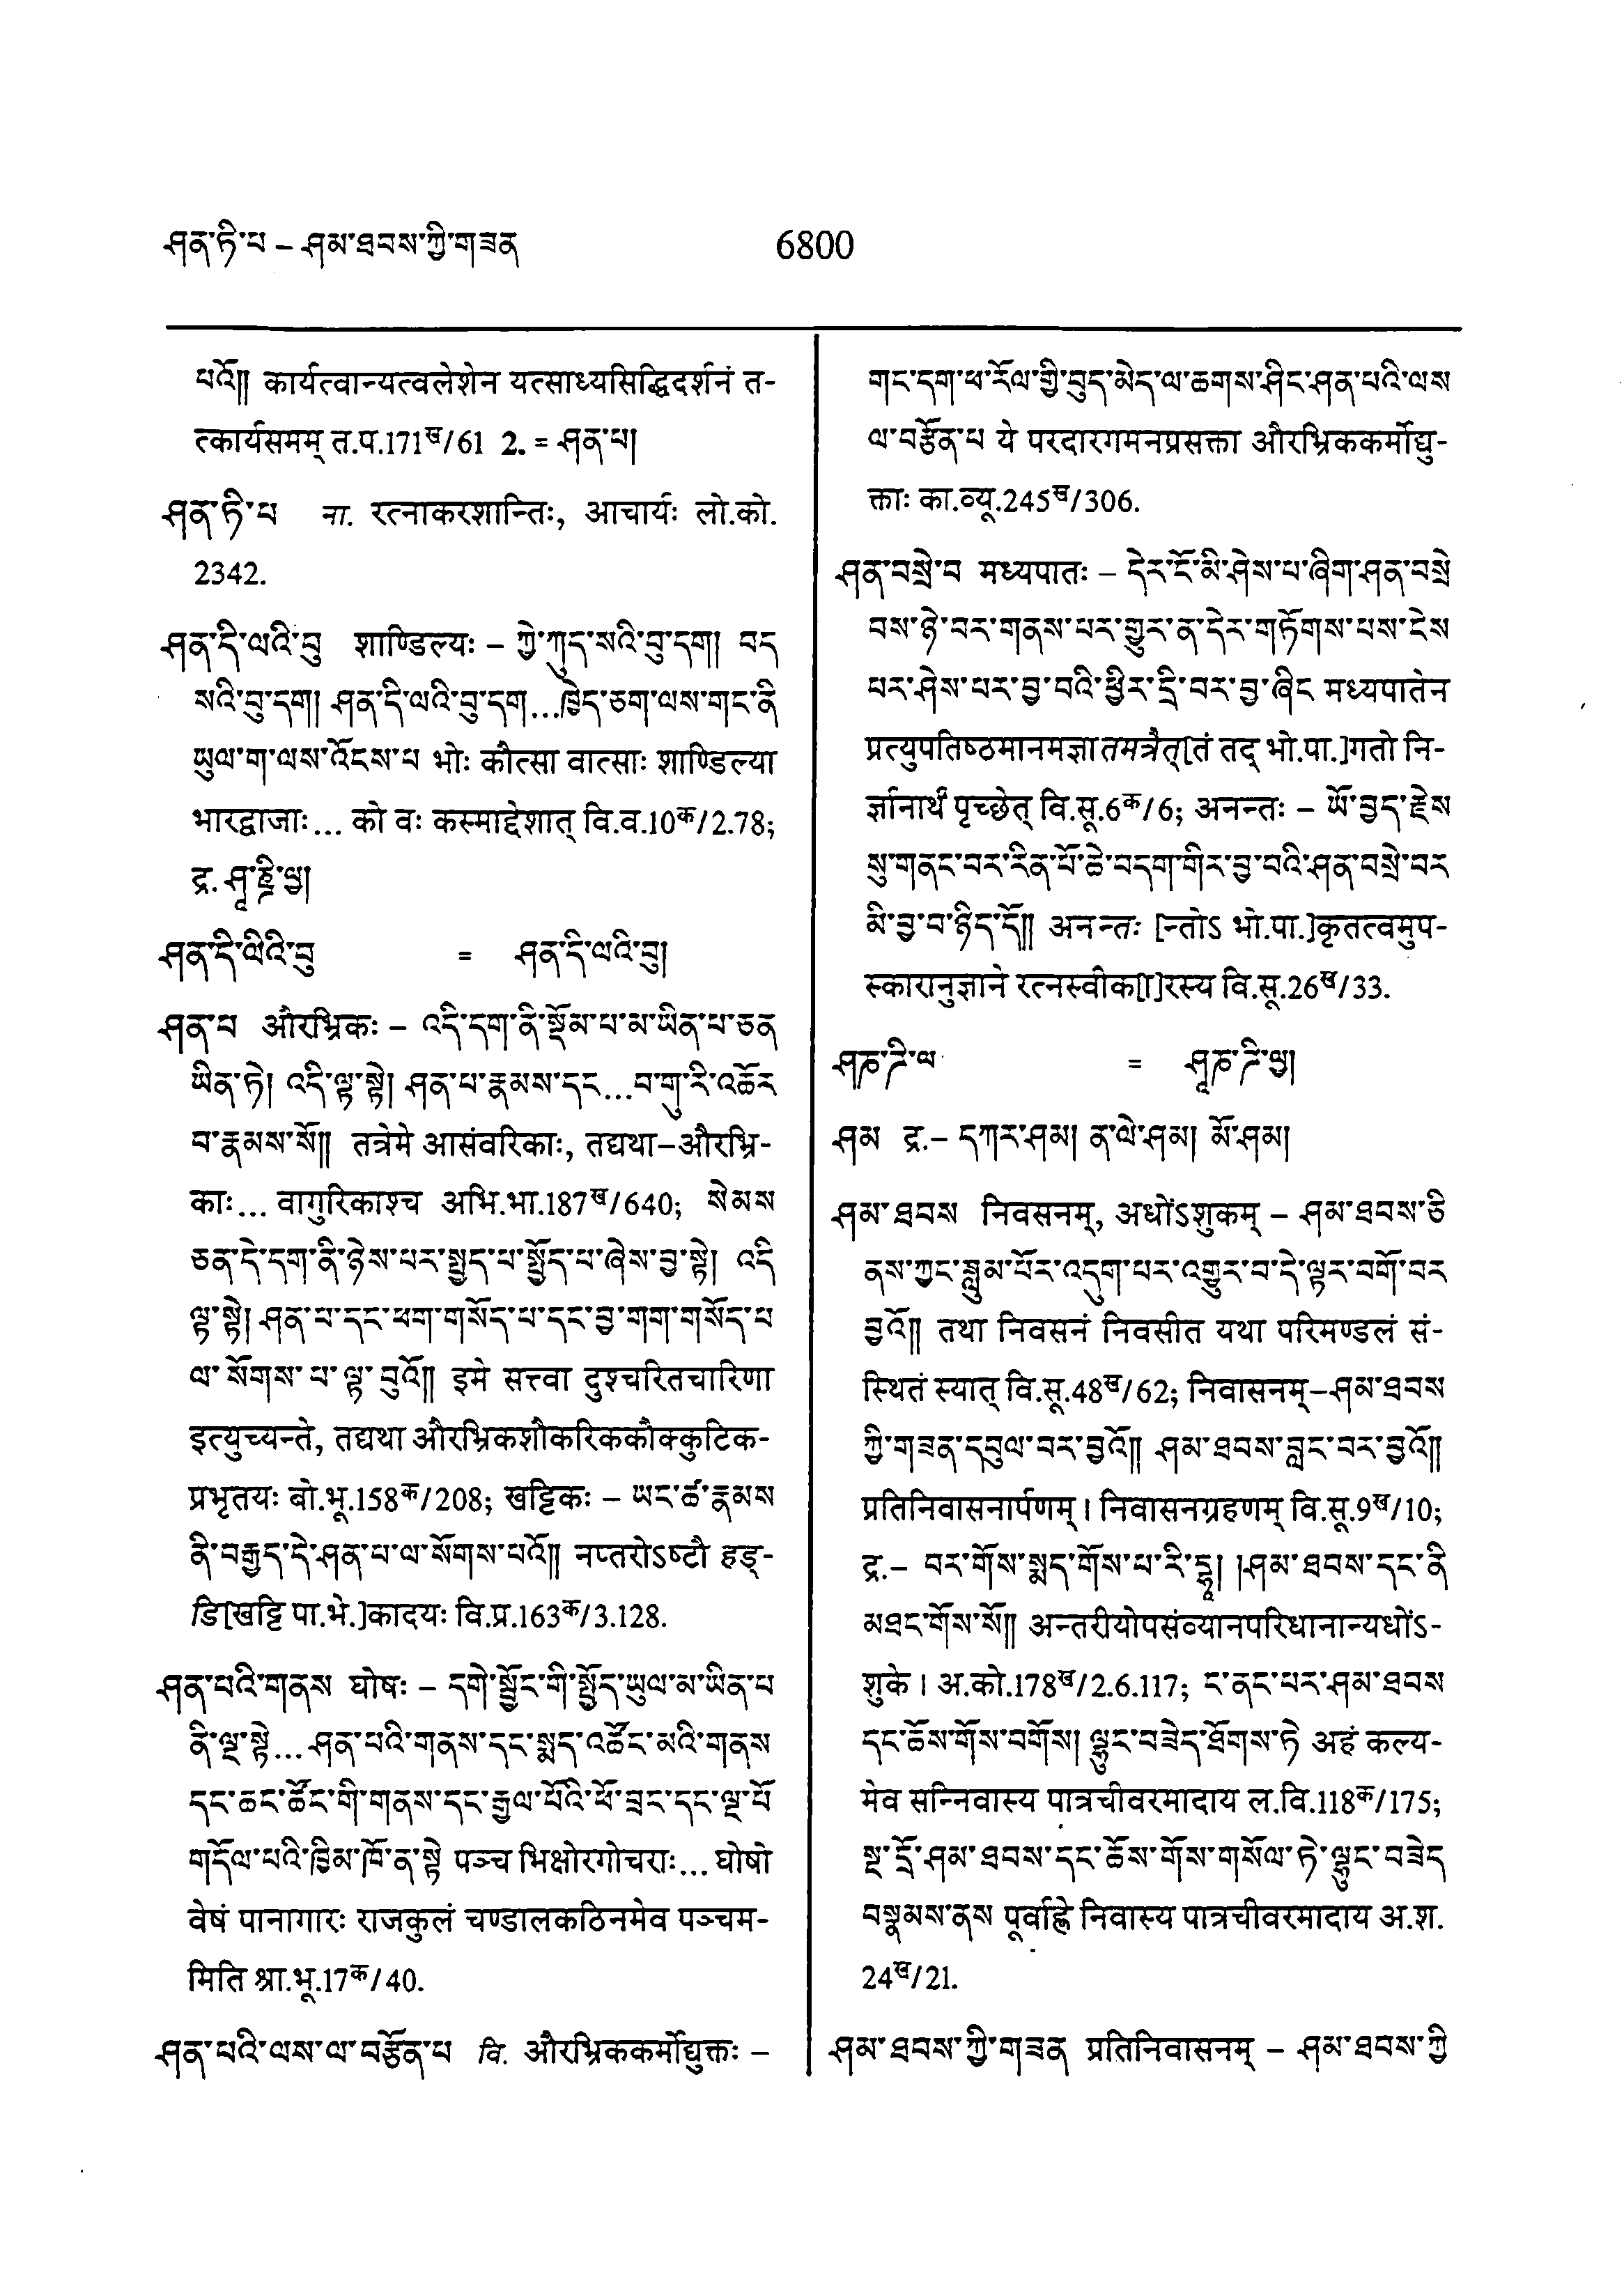 ཤན་ཏི་པ – ཤམ་ཐབས་ཀྱི་གཟན
6800
པའོ།། कार्यत्वान्यत्वलेशेन यत्साध्यसिद्धिदर्शनं त-
त्कार्यसमम् त.प.171ख/61 2. = ཤན་པ།
ཤན་ཏི་པ ना. रत्नाकरशान्तिः, आचार्यः लो.को.
2342.
ཤན་དི་ལའི་བུ शाण्डिल्यः – ཀྱེ་ཀུད་སའི་བུ་དག། བད
སའི་བུ་དག། ཤན་དི་ལའི་བུ་དག...ཁྱེད་ཅག་ལས་གང་ནི
ཡུལ་ག་ལས་འོངས་པ भोः कौत्सा वात्साः शाण्डिल्या
भारद्वाजाः... को वः कस्माद्देशात् वि.व.10क/2.78;
द्र. ཤཱ་ཎྜི་ལྱ།
ཤན་དི་ལིའི་བུ = ཤན་དི་ལའི་བུ།
ཤན་པ औरभ्रिकः – འདི་དག་ནི་སྡོམ་པ་མ་ཡིན་པ་ཅན
ཡིན་ཏེ། འདི་ལྟ་སྟེ། ཤན་པ་རྣམས་དང...བ་གུ་རི་འཆོར
བ་རྣམས་སོ།། तत्रेमे आसंवरिकाः, तद्यथा–औरभ्रि-
काः... वागुरिकाश्च अभि.भा.187ख/640; སེམས
ཅན་དེ་དག་ནི་ཉེས་པར་སྤྱད་པ་སྤྱོད་པ་ཞེས་བྱ་སྟེ། འདི
ལྟ་སྟེ། ཤན་པ་དང་ཕག་གསོད་པ་དང་བྱ་གག་གསོད་པ
ལ་སོགས་པ་ལྟ་བུའོ།། इमे सत्त्वा दुश्चरितचारिणा
इत्युच्यन्ते, तद्यथा औरभ्रिकशौकरिककौक्कुटिक-
प्रभृतयः बो.भू.158क/208; खट्टिकः – ཡང་ཚ་རྣམས
ནི་བརྒྱད་དེ་ཤན་པ་ལ་སོགས་པའོ།། नप्तरोऽष्टौ हड्-
डि[खट्टि पा.भे.]कादयः वि.प्र.163क/3.128.
ཤན་པའི་གནས घोषः – དགེ་སློང་གི་སྤྱོད་ཡུལ་མ་ཡིན་པ
ནི་ལྔ་སྟེ...ཤན་པའི་གནས་དང་སྨད་འཚོང་མའི་གནས
དང་ཆང་ཚོང་གི་གནས་དང་རྒྱལ་པོའི་ཕོ་བྲང་དང་ལྔ་པོ
གདོལ་པའི་ཁྱིམ་ཁོ་ན་སྟེ पञ्च भिक्षोरगोचराः... घोषो
वेषं पानागारः राजकुलं चण्डालकठिनमेव पञ्चम-
मिति श्रा.भू.17क/40.
ཤན་པའི་ལས་ལ་བརྩོན་པ वि. औरभ्रिककर्मोद्युक्तः –
གང་དག་ཕ་རོལ་གྱི་བུད་མེད་ལ་ཆགས་ཤིང་ཤན་པའི་ལས
ལ་བརྩོན་པ ये परदारगमनप्रसक्ता औरभ्रिककर्मोद्यु-
क्ताः का.व्यू.245ख/306.
ཤན་བསྲེ་བ मध्यपातः – དེར་ངོ་མི་ཤེས་པ་ཞིག་ཤན་བསྲེ
བས་ཉེ་བར་གནས་པར་གྱུར་ན་དེར་གཏོགས་པས་ངེས
པར་ཤེས་པར་བྱ་བའི་ཕྱིར་དྲི་བར་བྱ་ཞིང मध्यपातेन
प्रत्युपतिष्ठमानमज्ञातमत्रैत्[तं तद् भो.पा.]गतो नि-
र्ज्ञानार्थं पृच्छेत् वि.सू.6क/6; अनन्तः – ཡོ་བྱད་རྗེས
སུ་གནང་བར་རིན་པོ་ཆེ་བདག་གིར་བྱ་བའི་ཤན་བསྲེ་བར
མི་བྱ་བ་ཉིད་དོ།། अनन्तः [न्तोऽ भो.पा.]कृतत्वमुप-
स्कारानुज्ञाने रत्नस्वीक[ा]रस्य वि.सू.26ख/33.
ཤཎ་ཌི་ལ = ཤཱཎ་ཌི་ལྱ།
ཤམ द्र.– དཀར་ཤམ། ན་ལེ་ཤམ། མོ་ཤམ།
ཤམ་ཐབས निवसनम्, अधोंऽशुकम् – ཤམ་ཐབས་ཅི
ནས་ཀྱང་ཟླུམ་པོར་འདུག་པར་འགྱུར་བ་དེ་ལྟར་བགོ་བར
བྱའོ།། तथा निवसनं निवसीत यथा परिमण्डलं सं-
स्थितं स्यात् वि.सू.48ख/62; निवासनम्–ཤམ་ཐབས
ཀྱི་གཟན་དབུལ་བར་བྱའོ།། ཤམ་ཐབས་བླང་བར་བྱའོ།།
प्रतिनिवासनार्पणम्। निवासनग्रहणम् वि.सू.9ख/10;
द्र.– བར་གོས་སྨད་གོས་པ་རི་དྷཱ། །ཤམ་ཐབས་དང་ནི
མཐང་གོས་སོ།། अन्तरीयोपसंव्यानपरिधानान्यधोंऽ-
शुके। अ.को.178ख/2.6.117; ང་ནང་པར་ཤམ་ཐབས
དང་ཆོས་གོས་བགོས། ལྷུང་བཟེད་ཐོགས་ཏེ अहं कल्य-
मेव सन्निवास्य पात्रचीवरमादाय ल.वि.118क/175;
སྔ་དྲོ་ཤམ་ཐབས་དང་ཆོས་གོས་གསོལ་ཏེ་ལྷུང་བཟེད
བསྣམས་ནས पूर्वाह्णे निवास्य पात्रचीवरमादाय अ.श.
24ख/21.
ཤམ་ཐབས་ཀྱི་གཟན प्रतिनिवासनम् – ཤམ་ཐབས་ཀྱི